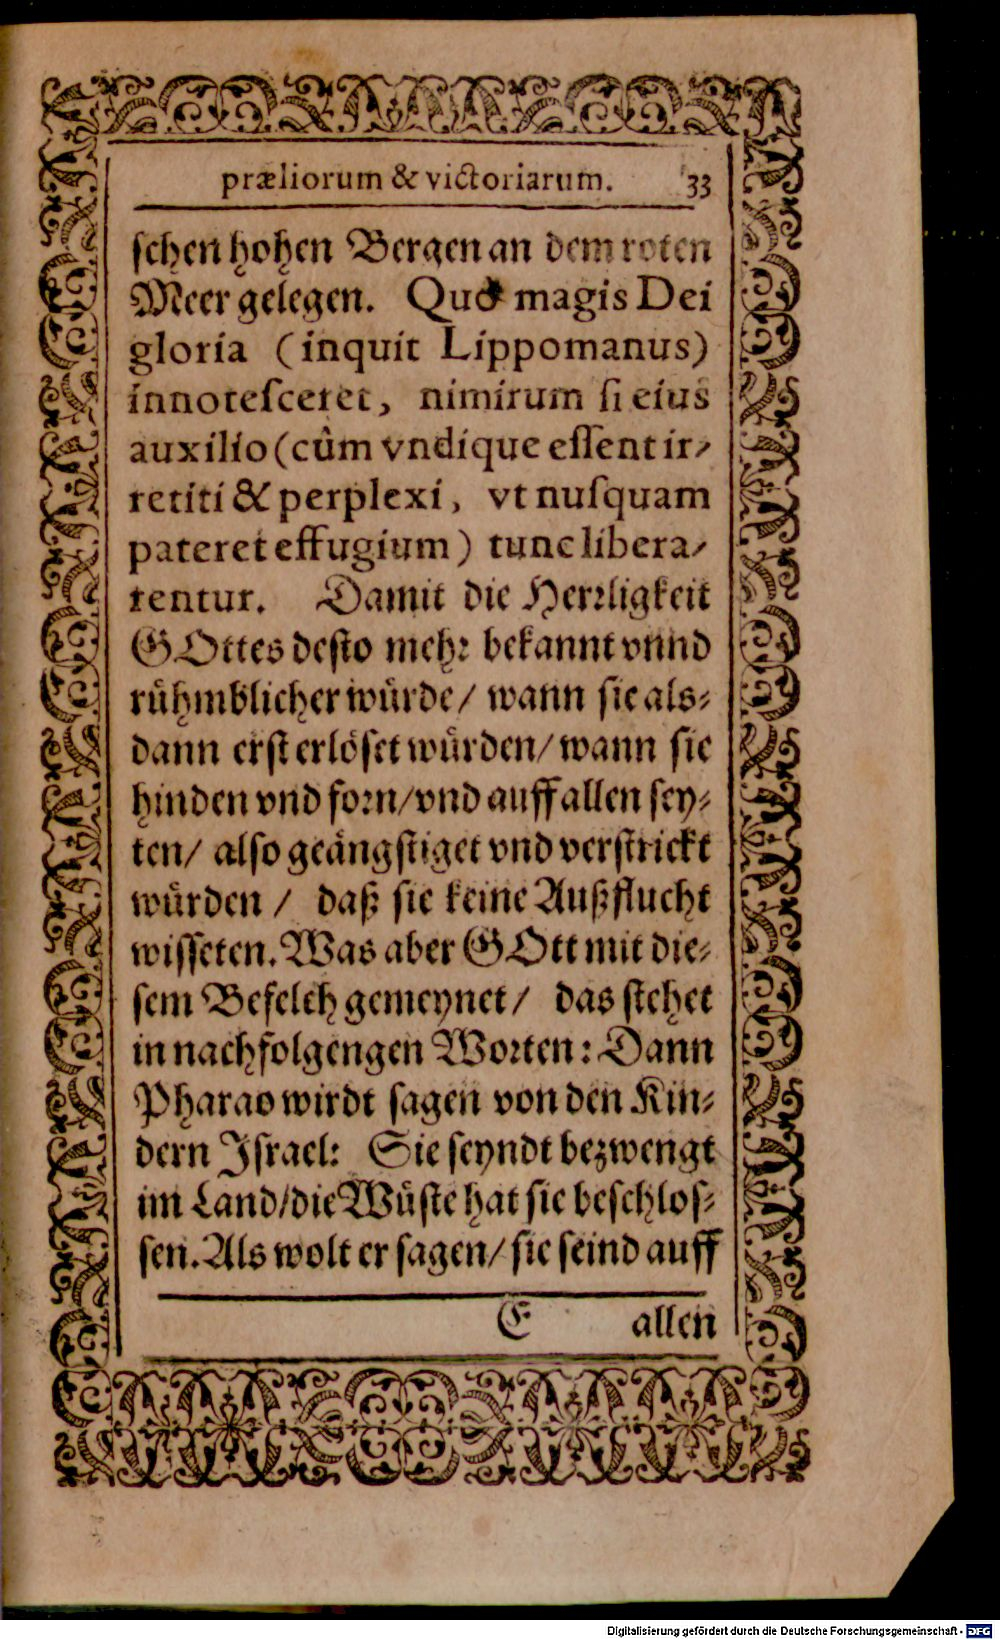 præliorum & victoriarum. 33
ſchen hohen Bergen an dem roten
Meer gelegen. Quo magis Dei
gloria (inquit Lippomanus)
innoteſceret, nimirum ſi eius
auxilio (cûm vndique eſſent ir-
retiti & perplexi, vt nuſquam
pateret effugium) tunc libera-
rentur. Damit die Herꝛligkeit
GOttes deſto mehꝛ bekannt vnnd
ruͤhmblicher wuͤrde/ wann ſie als-
dann erſt erloͤſet wuͤrden/ wann ſie
hinden vnd foꝛn/ vnd auff allen ſey-
ten/ alſo geaͤngſtiget vnd verſtrickt
wuͤrden / daß ſie keine Außflucht
wiſſeten. Was aber GOtt mit die-
ſem Befelch gemeynet/ das ſtehet
in nachfolgengen Woꝛten: Dann
Pharao wirdt ſagen von den Kin-
dern Iſrael: Sie ſeyndt bezwengt
im Land/ die Wuͤſte hat ſie beſchloſ-
ſen. Als wolt er ſagen/ ſie ſeind auff
E allen
Digitalisierung gefördert durch die Deutsche Forschungsgemeinschaft - DFG